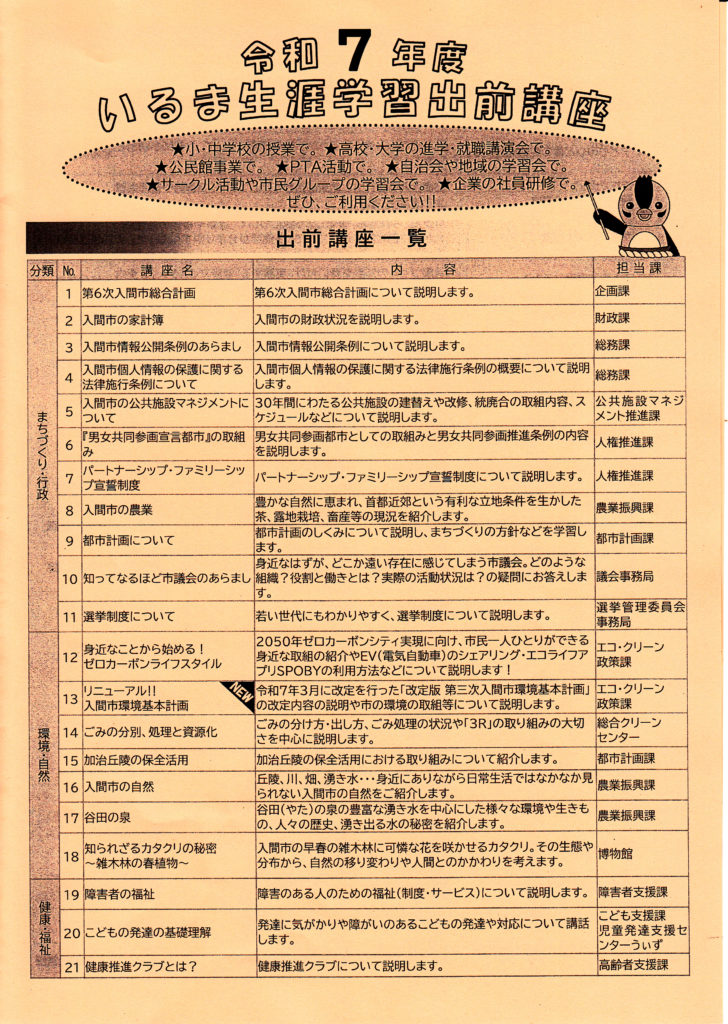 令和7年度
いるま生涯学習出前講座
★小・中学校の授業で。★高校・大学の進学・就職講演会で。
★公民館事業で。★PTA活動で。★自治会や地域の学習会で。
★サークル活動や市民グループの学習会で。★企業の社員研修で。
ぜひ、ご利用ください!!
出前講座一覧
分類 No. 講座名 内容 担当課
まちづくり・行政
1 第6次入間市総合計画 第6次入間市総合計画について説明します。 企画課
2 入間市の家計簿 入間市の財政状況を説明します。 財政課
3 入間市情報公開条例のあらまし 入間市情報公開条例について説明します。 総務課
4 入間市個人情報の保護に関する 入間市個人情報の保護に関する法律施行条例の概要について説明 総務課
法律施行条例について します。
5 入間市の公共施設マネジメントに 30年間にわたる公共施設の建替えや改修、統廃合の取組内容、ス 公共施設マネジ
ついて ケジュールなどについて説明します。 メント推進課
6 『男女共同参画宣言都市』の取組 男女共同参画都市としての取組みと男女共同参画推進条例の内容 人権推進課
み を説明します。
7 パートナーシップ・ファミリーシッ パートナーシップ・ファミリーシップ宣誓制度について説明します。 人権推進課
プ宣誓制度
8 入間市の農業 豊かな自然に恵まれ、首都近郊という有利な立地条件を生かした 農業振興課
茶、露地栽培、畜産等の現況を紹介します。
9 都市計画について 都市計画のしくみについて説明し、まちづくりの方針などを学習し 都市計画課
ます。
10 知ってなるほど市議会のあらまし 身近なはずが、どこか遠い存在に感じてしまう市議会。どのような 議会事務局
組織?役割と働きとは?実際の活動状況は?の疑問にお答えしま
す。
11 選挙制度について 若い世代にもわかりやすく、選挙制度について説明します。 選挙管理委員会
事務局
環境・自然
12 身近なことから始める! 2050年ゼロカーボンシティ実現に向け、市民一人ひとりができる エコ・クリーン
ゼロカーボンライフスタイル 身近な取組の紹介やEV(電気自動車)のシェアリング・エコライフア 政策課
プリSPOBYの利用方法などについて説明します!
13 リニューアル!! NEW 令和7年3月に改定を行った「改定版 第三次入間市環境基本計画」 エコ・クリーン
入間市環境基本計画 の改定内容の説明や市の環境の取組等について説明します。 政策課
14 ごみの分別、処理と資源化 ごみの分け方・出し方、ごみ処理の状況や「3R」の取り組みの大切 総合クリーン
さを中心に説明します。 センター
15 加治丘陵の保全活用 加治丘陵の保全活用における取り組みについて紹介します。 都市計画課
16 入間市の自然 丘陵、川、畑、湧き水・・・身近にありながら日常生活ではなかなか見 農業振興課
られない入間市の自然をご紹介します。
17 谷田の泉 谷田(やた)の泉の豊富な湧き水を中心にした様々な環境や生きも 農業振興課
の、人々の歴史、湧き出る水の秘密を紹介します。
18 知られざるカタクリの秘密 入間市の早春の雑木林に可憐な花を咲かせるカタクリ。その生態や 博物館
~雑木林の春植物~ 分布から、自然の移り変わりや人間とのかかわりを考えます。
健康・福祉
19 障害者の福祉 障害のある人のための福祉(制度・サービス)について説明します。 障害者支援課
20 こどもの発達の基礎理解 発達に気がかりや障がいのあるこどもの発達や対応について講話 こども支援課
します。 児童発達支援セ
ンターうぃず
21 健康推進クラブとは? 健康推進クラブについて説明します。 高齢者支援課